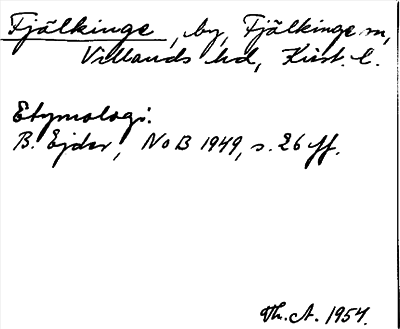 Fjälkinge, by, Fjälkinge sn,
Villands hd, Krist. l.
Etymologi:
B. Ejder, NoB 1949, s. 26 ff.
Th. A. 1954.